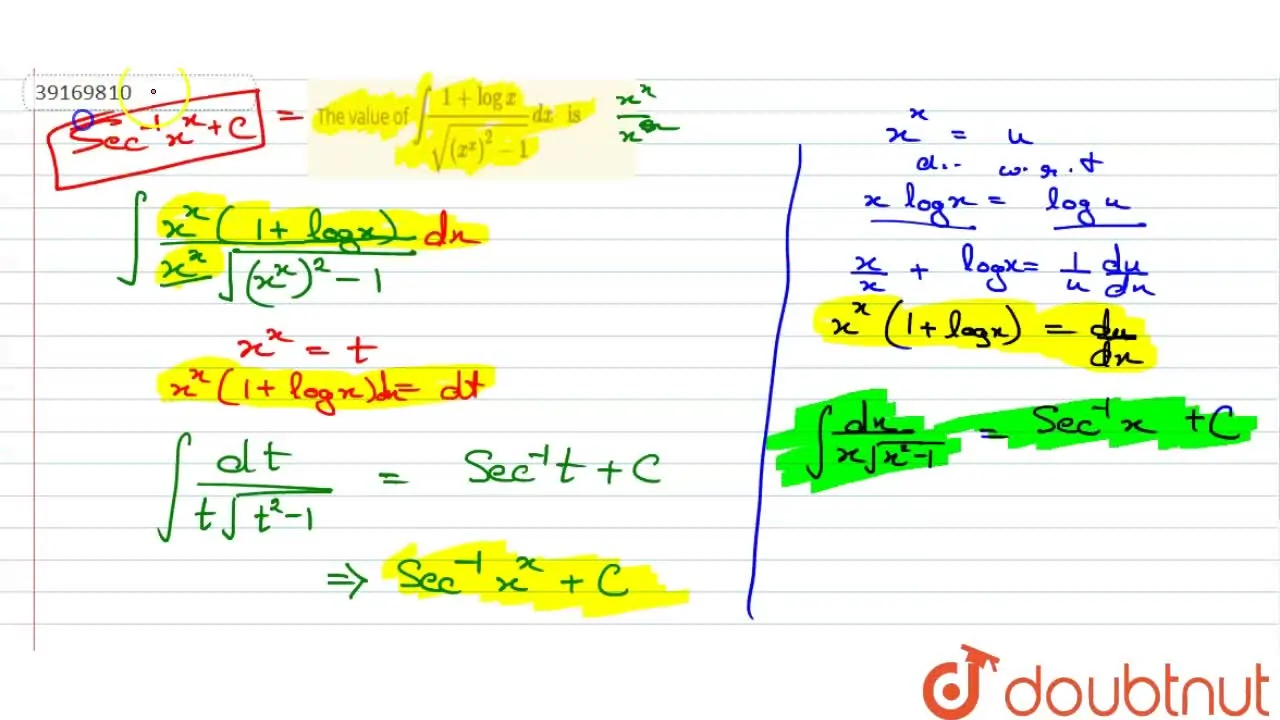 39169810
Sec⁻¹ xˣ + C = The value of ∫ (1 + log x)/√((xˣ)² − 1) dx is xˣ/xˣ
∫ xˣ (1 + log x)/(xˣ √((xˣ)² − 1)) dx
xˣ = t
xˣ (1 + log x) dx = dt
∫ dt/(t√(t² − 1)) = Sec⁻¹ t + C
⇒ Sec⁻¹ xˣ + C
xˣ = u
d.. w.r.t
x log x = log u
x/x + log x = 1/u du/dx
xˣ (1 + log x) = du/dx
∫ dx/(x√(x² − 1)) = Sec⁻¹ x + C
doubtnut